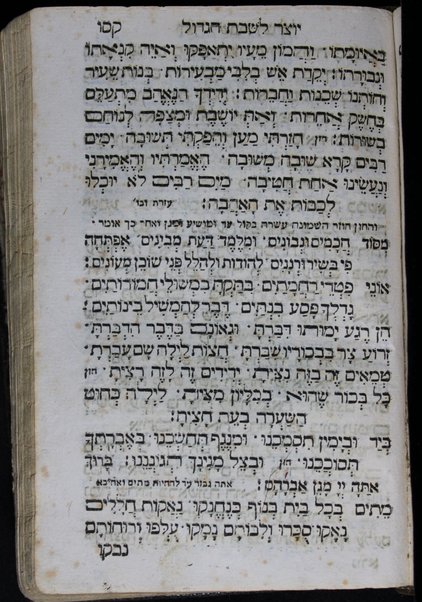 יוצר לשבת הגדול קסו
בְּאֵימָתוֹ: וַהֲמוֹן מֵעָיו יִתְאַפְּקוּ וְאַיֵּה קִנְאָתוֹ
וּגְבוּרָתוֹ: יְקֹדַת אֵשׁ בְּלִבִּי מַבְעִירוֹת בְּנוֹת שֵׂעִיר
וְחוֹתְנוֹ שְׁכֵנוֹת וַחֲבֵרוֹת: וִידִידָךְ הַנֶּאֱהָב מִתְעַלֵּם
בְּחֵשֶׁק אֲחֵרוֹת: וְזֹאת יוֹשֶׁבֶת וּמְצַפָּה לְנוֹחַם
בְּשׂוֹרוֹת: חָזַרְתִּי מַעַן וְהֵפַקְתִּי תְּשׁוּבָה יָמִים
רַבִּים קָרָא שׁוּבָה מְשׁוּבָה הֶאֱמַרְתִּיו וְהֶאֱמִירָנִי
וְנַעֲשֵׂינוּ אַחַת חֲטִיבָה מַיִם רַבִּים לֹא יוּכְלוּ
לְכַבּוֹת אֶת הָאַהֲבָה: עזרת וכו'
והחזן חוזר השמונה עשרה בקול עד ומושיע ומגן ואחר כך אומר:
מִסּוֹד חֲכָמִים וּנְבוֹנִים וּמִלֶּמֶד דַּעַת מְבִינִים אֶפְתְּחָה
פִּי בְּשִׁיר וּרְנָנִים לְהוֹדוֹת וּלְהַלֵּל פְּנֵי שׁוֹכֵן מְעוֹנִים:
אוֹנֵי פִטְרֵי רַחֲמָתַיִם בְּהִתְּקָךְ כְּמִשּׁוּלֵי חֲמוּדוֹתַיִם
גָּדְלָךְ פֶּסַע בְּנָתַיִם דֶּבֶר לְהַמְשִׁיל בֵּינוֹתַיִם:
הֵן רֶגַע יָמוּתוּ דִּבַּרְתָּ וּגְאוֹנָם בַּדֶּבֶר הִדְבַּרְתָּ
זְרוֹעַ צַר בִּבְכוֹרָיו שִׁבַּרְתָּ חֲצוֹת לַיְלָה שָׁם עָבַרְתָּ
טְמֵאִים זֶה בָּזֶה נִצֵּיתָ יְדִידִים זֶה לָזֶה רִצֵּיתָ חזן
כָּל בְּכוֹר שֶׁהוּא בְּכִלָּיוֹן מִצֵּיתָ לַיְלָה כְּחוּט
הַשַּׂעֲרָה בְּעֵת חָצִיתָ:
בְּיָד וּבְיָמִין תִּסְמְכֵנוּ וּמִנֶּגֶף תַּחְשְׂכֵנוּ בְּאֶבְרָתְךָ
תְּסוֹכְכֵנוּ חזן וּבְצֵל מָגִינָךְ תְּגוֹנְנֵנוּ: בָּרוּךְ
אַתָּה יְיָ מָגֵן אַבְרָהָם: אתה גבור עד להחיות מתים ואח"כא
מֵתִים בְּכָל בַּיִת בְּנוֹף כְּנֶחְנְקוּ נַאֲקוֹת חֲלָלִים
נָאֲקוּ סָכְרוּ וְלִבּוֹתָם נָמַקּוּ עֻלְּפוּ וְרוּחוֹתָם
נבקו